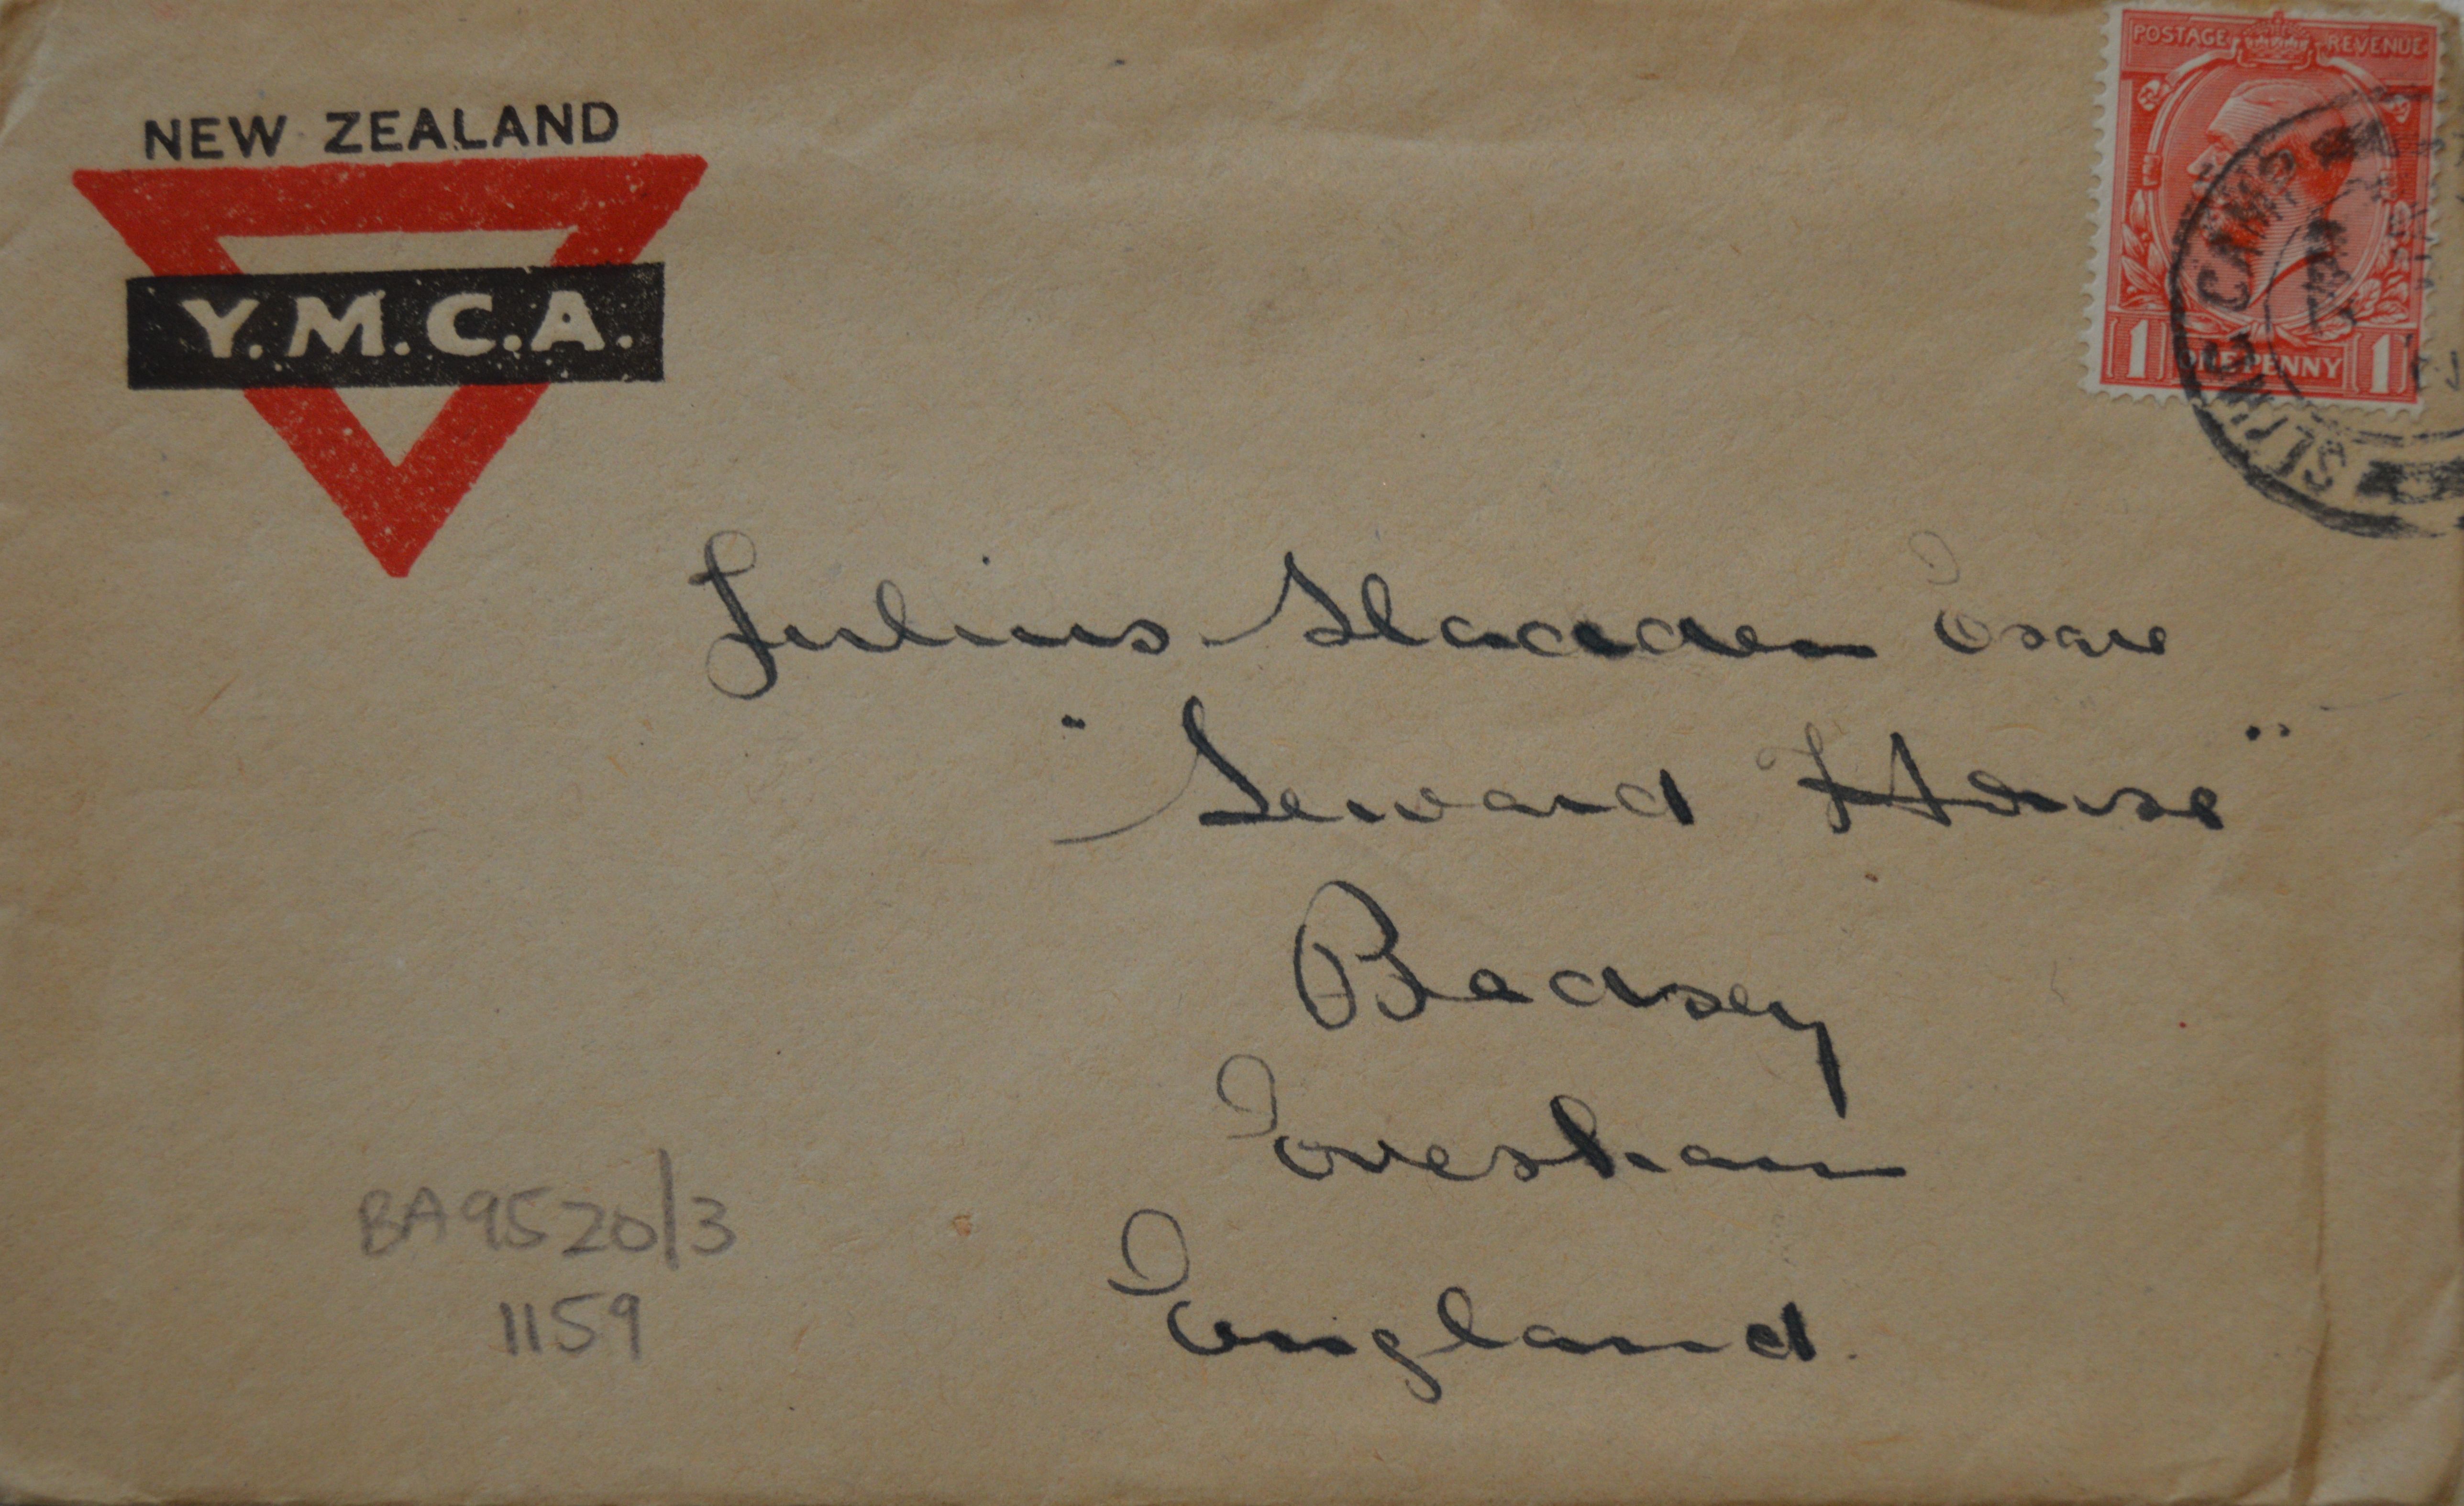 POSTAGE REVENUE
NEW ZEALAND
Y.M.C.A.
SLING CAMP
1 ONE PENNY 1
Julius Sladden Esqre
"Seward House"
Badsey
Evesham
England.
BA9520/3
1159